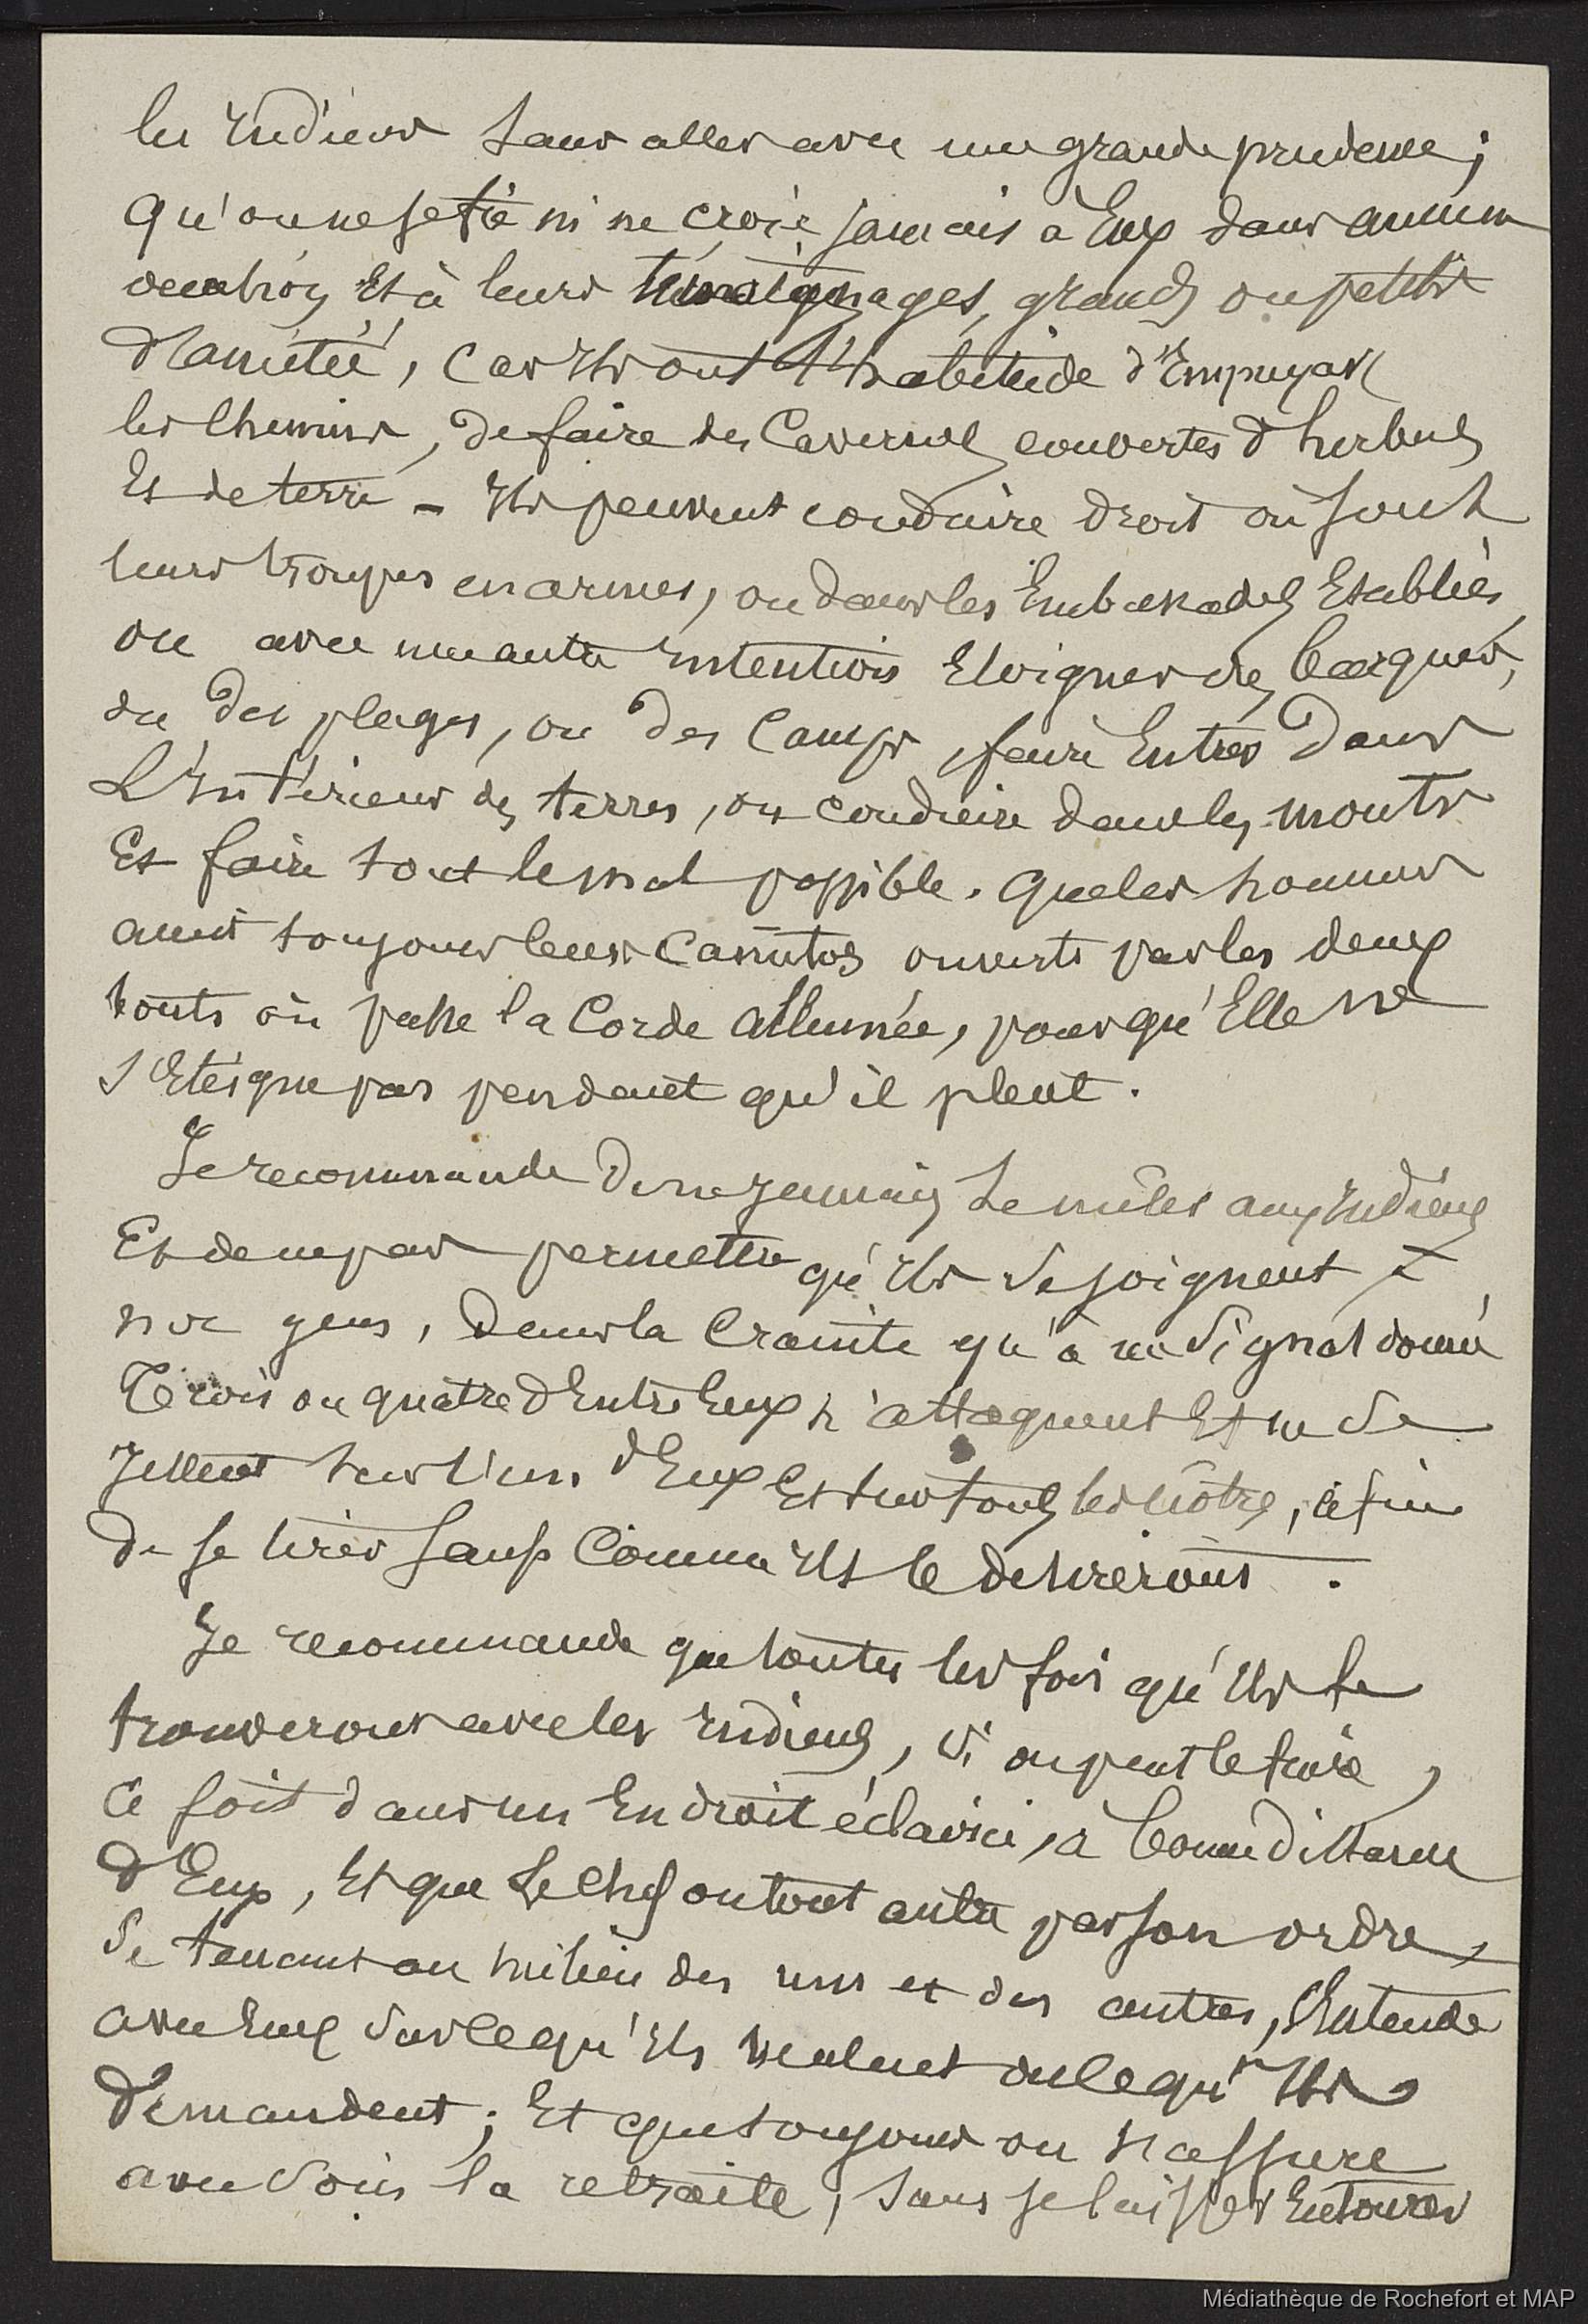 les Indiens sans aller avec une grande prudence ;
qu'on ne se fie ni ne croie jamais à Eux dans aucun
Et à leurs témoignages, grands ou petits
d'amitié, Car Ils ont l'habitude d'Empuyar
les Chemins, de faire des Cavernes couvertes d'herbes
Et de terre – Ils peuvent conduire droit où sont
leurs troupes en armes, ou dans les Embuscades Etablies,
ou avec une autre Intention Eloigner des barques,
ou des plages, ou des Camps, faire Entrer Dans
L'Intérieur des terres, ou conduire dans les monts
Et faire tout le mal possible. Que les hommes
aient toujours leurs Cañutos ouverts par les deux
bouts où passe la Corde allumée, pour qu'Elle ne
s'Eteigne pas pendant qu'il pleut.
Je recommande De ne jamais se mêler aux Indiens
Et de ne pas permettre qu'Ils se joignent à
nos gens, dans la Crainte qu'à un Signal donné
Trois ou quatre d'Entre Eux n'attaquent Et ne se
jettent sur l'un d'Eux Et sur tous les nôtres, afin
de se tirer saufs Comme Ils le desireront.
Je recommande que toutes les fois qu'Ils se
trouveront avec les Indiens, si on peut le faire,
ce soit dans un Endroit éclairci, à bonne distance
d'Eux, Et que le Chef ou tout autre par son ordre,
se tenant au milieu des uns et des autres, s'Entende
avec Eux sur ce qu'Ils veulent ou ce qu'Ils
Demandent ; Et que toujours on s'assure
avec soin la retraite, sans se laisser Entourer
Médiathèque de Rochefort et MAP